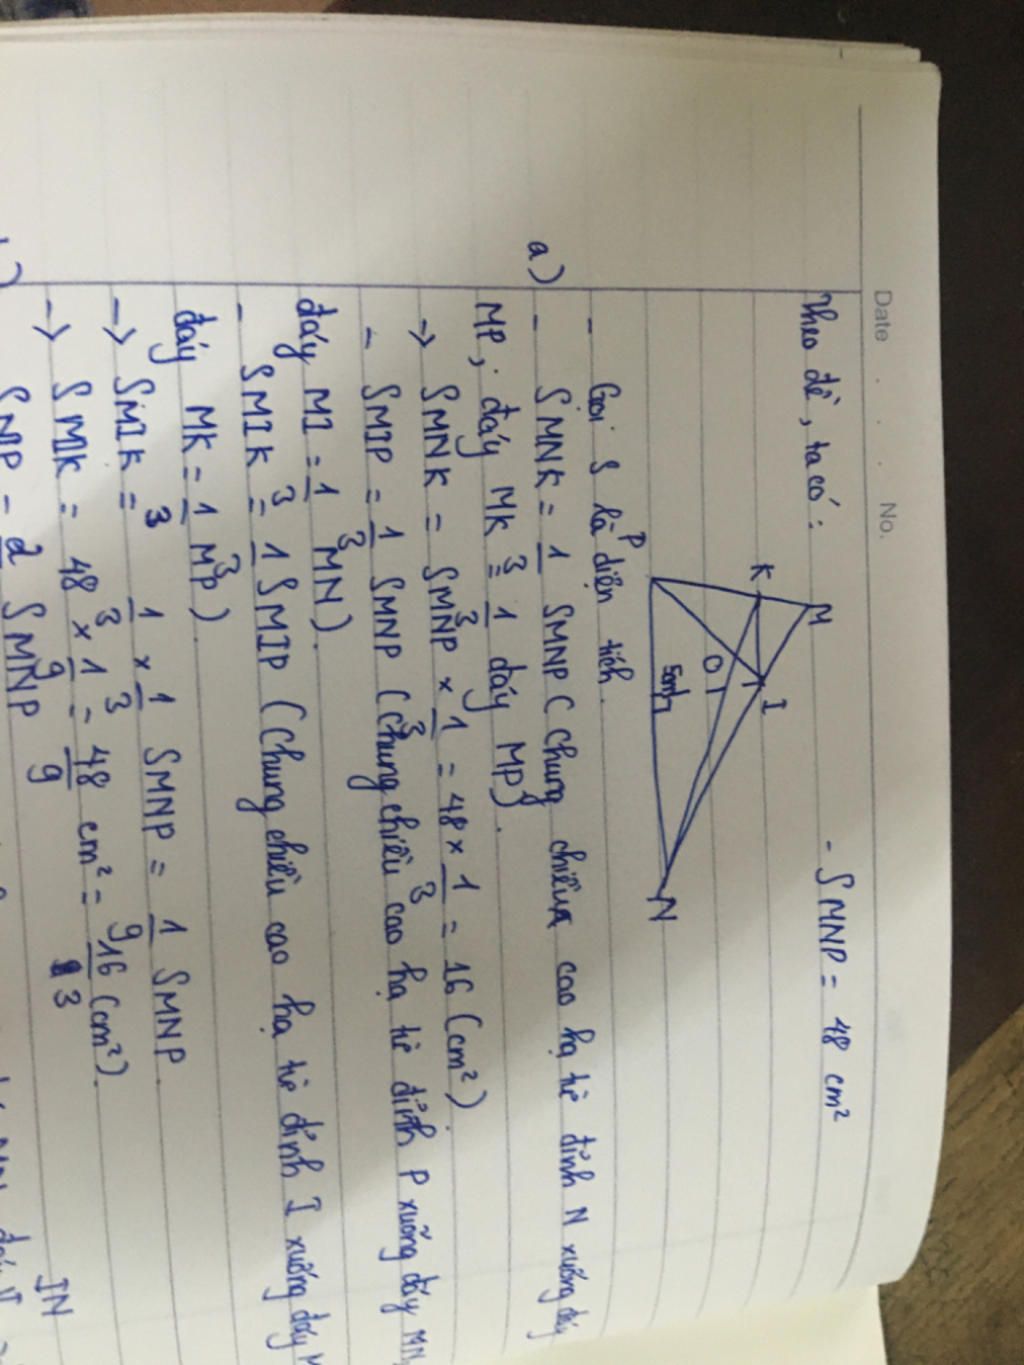 Date . . . No.
Theo đề, ta có:
- SMNP = 48 cm²
M
K
I
O
P
5cm
N
- Gọi S là diện tích.
a) - SMNK = 1/3 SMNP (Chung chiều cao hạ từ đỉnh N xuống đáy
MP; đáy MK = 1/3 đáy MP).
→ SMNK = SMNP × 1/3 = 48 × 1/3 = 16 (cm²).
- SMIP = 1/3 SMNP (Chung chiều cao hạ từ đỉnh P xuống đáy MN,
đáy MI = 1/3 MN).
- SMIK = 1/3 SMIP (Chung chiều cao hạ từ đỉnh I xuống đáy
đáy MK = 1/3 MP).
→ SMIK = 1/3 × 1/3 SMNP = 1/9 SMNP
→ SMIK = 48 × 1/9 = 48/9 cm² = 16/3 (cm²).
SNIP = 2 SMNP
IN